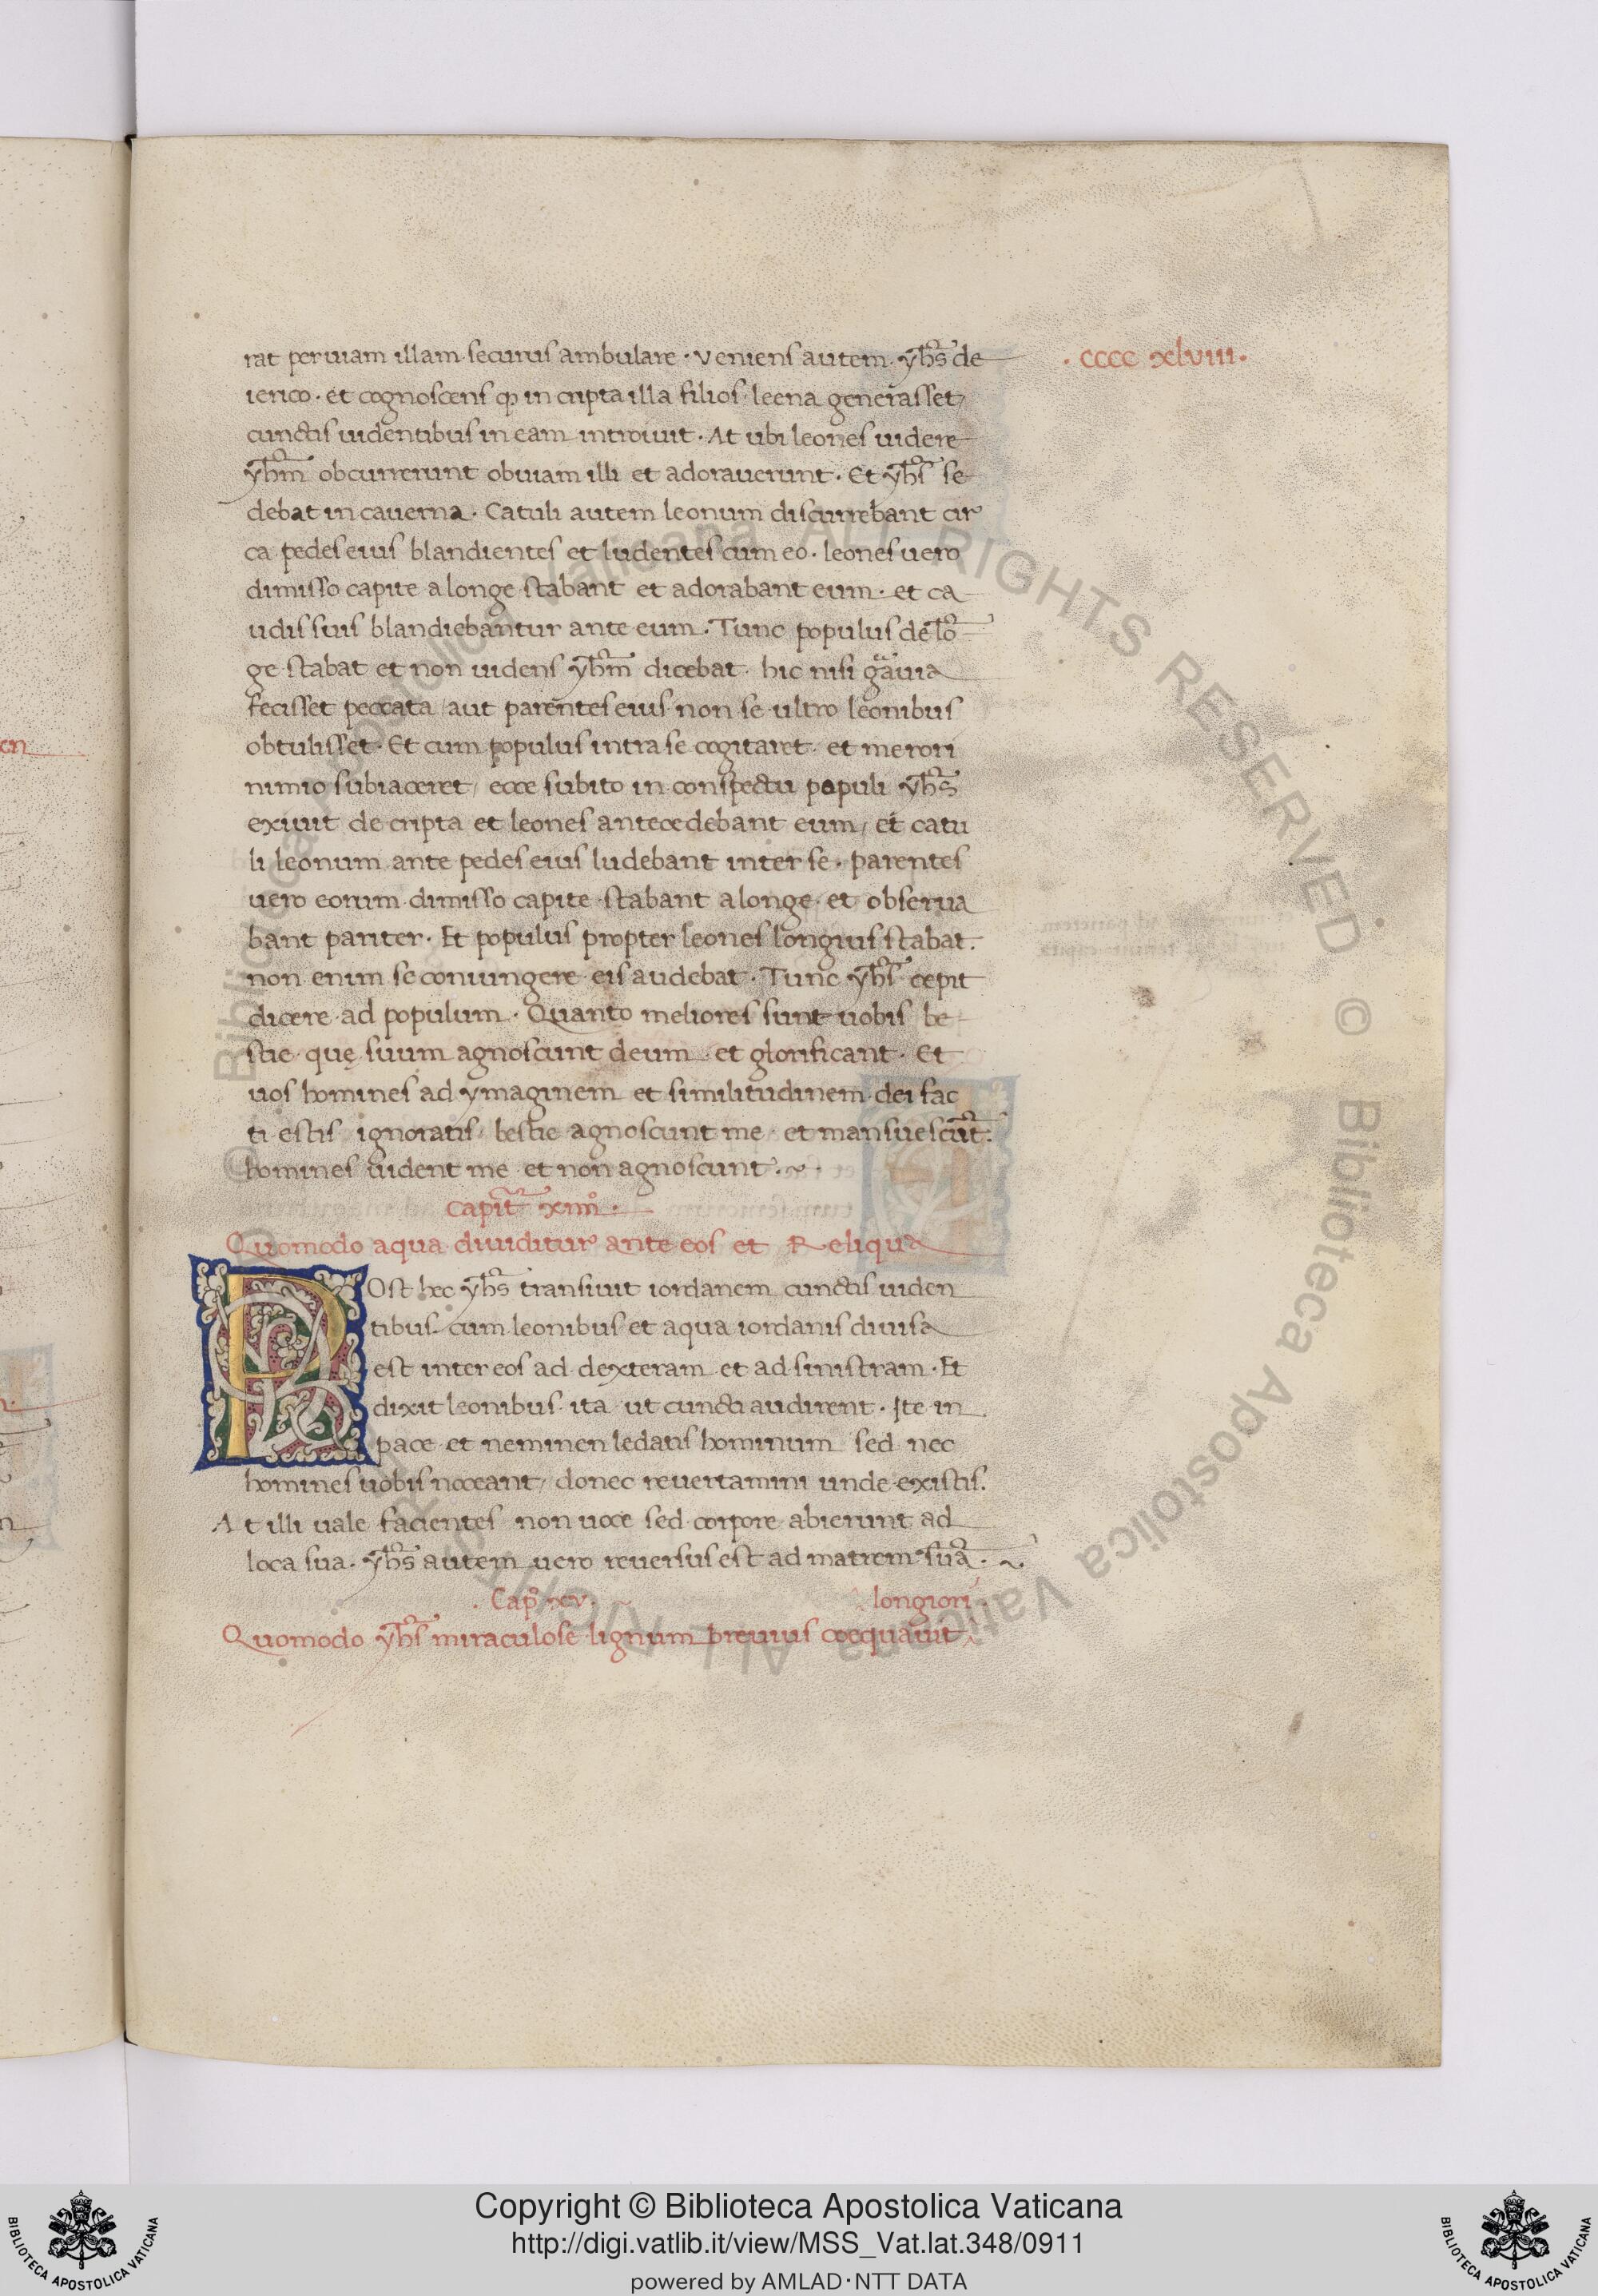 rat per uiam illam securus ambulare · Veniens autem yh̅s de
· cccc xlviii ·
ierico · et cognoscens ꝙ in cripta illa filios leena generasset /
cunctis uidentibus in eam introiuit · At ubi leones uidere
yh̅m obcurrerunt obuiam illi et adorauerunt · Et yh̅s se
debat in cauerna · Catuli autem leonum discurrebant cir
ca pedes eius blandientes et ludentes cum eo · leones uero
dimisso capite a longe stabant et adorabant eum · et ca
udis suis blandiebantur ante eum · Tunc populus de lo̅
ge stabat et non uidens yh̅m dicebat · hic nisi gͣuia
fecisset peccata / aut parentes eius non se ultro leonibus
obtulisset · Et cum populus intra se cogitaret · et merori
nimio subiaceret / ecce subito in conspectu populi yh̅s
exiuit de cripta et leones antecedebant eum / et catu
li leonum ante pedes eius ludebant inter se · parentes
uero eorum dimisso capite stabant a longe · et obserua
bant pariter · Et populus propter leones longius stabat ·
non enim se coniungere eis audebat · Tunc yh̅s cepit
dicere ad populum · Quanto meliores sunt uobis be
stie quę suum agnoscunt deum · et glorificant · Et
uos homines ad ymaginem et similitudinem dei fac
ti estis / ignoratis / bestie agnoscunt me · et mansuescu̅t ·
homines uident me et non agnoscunt · ~ ·
Capit̅ xiiii° ·
Quomodo aqua diuiditur ante eos et Reliqua
POst hec yh̅s transiuit iordanem cunctis uiden
tibus cum leonibus et aqua iordanis diuisa
est inter eos ad dexteram et ad sinistram · Et
dixit leonibus ita ut cuncti audirent · Ite in
pace et neminen ledatis hominum sed nec
homines uobis noceant / donec reuertamini unde existis ·
At illi uale facientes non uoce sed corpore abierunt ad
loca sua · yh̅s autem uero reuersus est ad matrem sua̅ · ~
· Cap° xv · ~
longiori ·
Quomodo yh̅s miraculose lignum breuius coequauit
Copyright © Biblioteca Apostolica Vaticana
http://digi.vatlib.it/view/MSS_Vat.lat.348/0911
powered by AMLAD·NTT DATA
BIBLIOTECA APOSTOLICA VATICANA
BIBLIOTECA APOSTOLICA VATICANA
© Biblioteca Apostolica Vaticana ALL RIGHTS RESERVED © Biblioteca Apostolica Vaticana ALL RIGHT